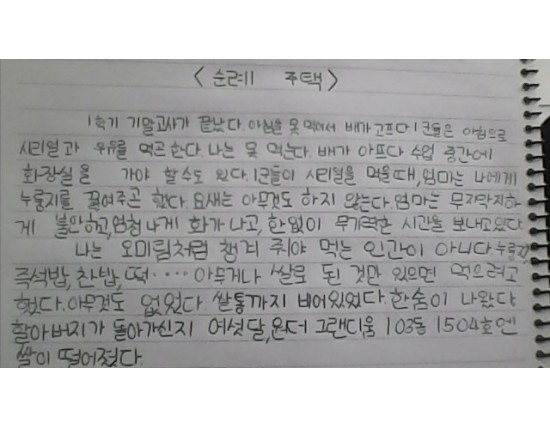 < 순례 주택 >
1학기 기말고사가 끝났다. 아침을 못 먹어서 배가 고프다 1군들은 아침으로
시리얼과 우유를 먹곤 한다. 나는 못 먹는다. 배가 아프다 수업 중간에
화장실을 가야 할 수도 있다. 1군들이 시리얼을 먹을 때, 엄마는 나에게
누룽지를 끓여주곤 했다. 요새는 아무것도 하지 않는다. 엄마는 무지막지하
게 불안하고, 엄청나게 화가 나고, 한없이 무기력한 시간을 보내고있다
나는 오미림처럼 챙겨 줘야 먹는 인간이 아니다. 누룽지
즉석밥, 찬밥, 떡 ‥‥ 아무거나 쌀로 된 것만 있으면 먹으려고
했다. 아무것도 없었다 쌀통까지 비어있었다. 한숨이 나왔다
할아버지가 돌아가신지 여섯달, 원더 그랜디움 103동 1504호엔
쌀이 떨어졌다.